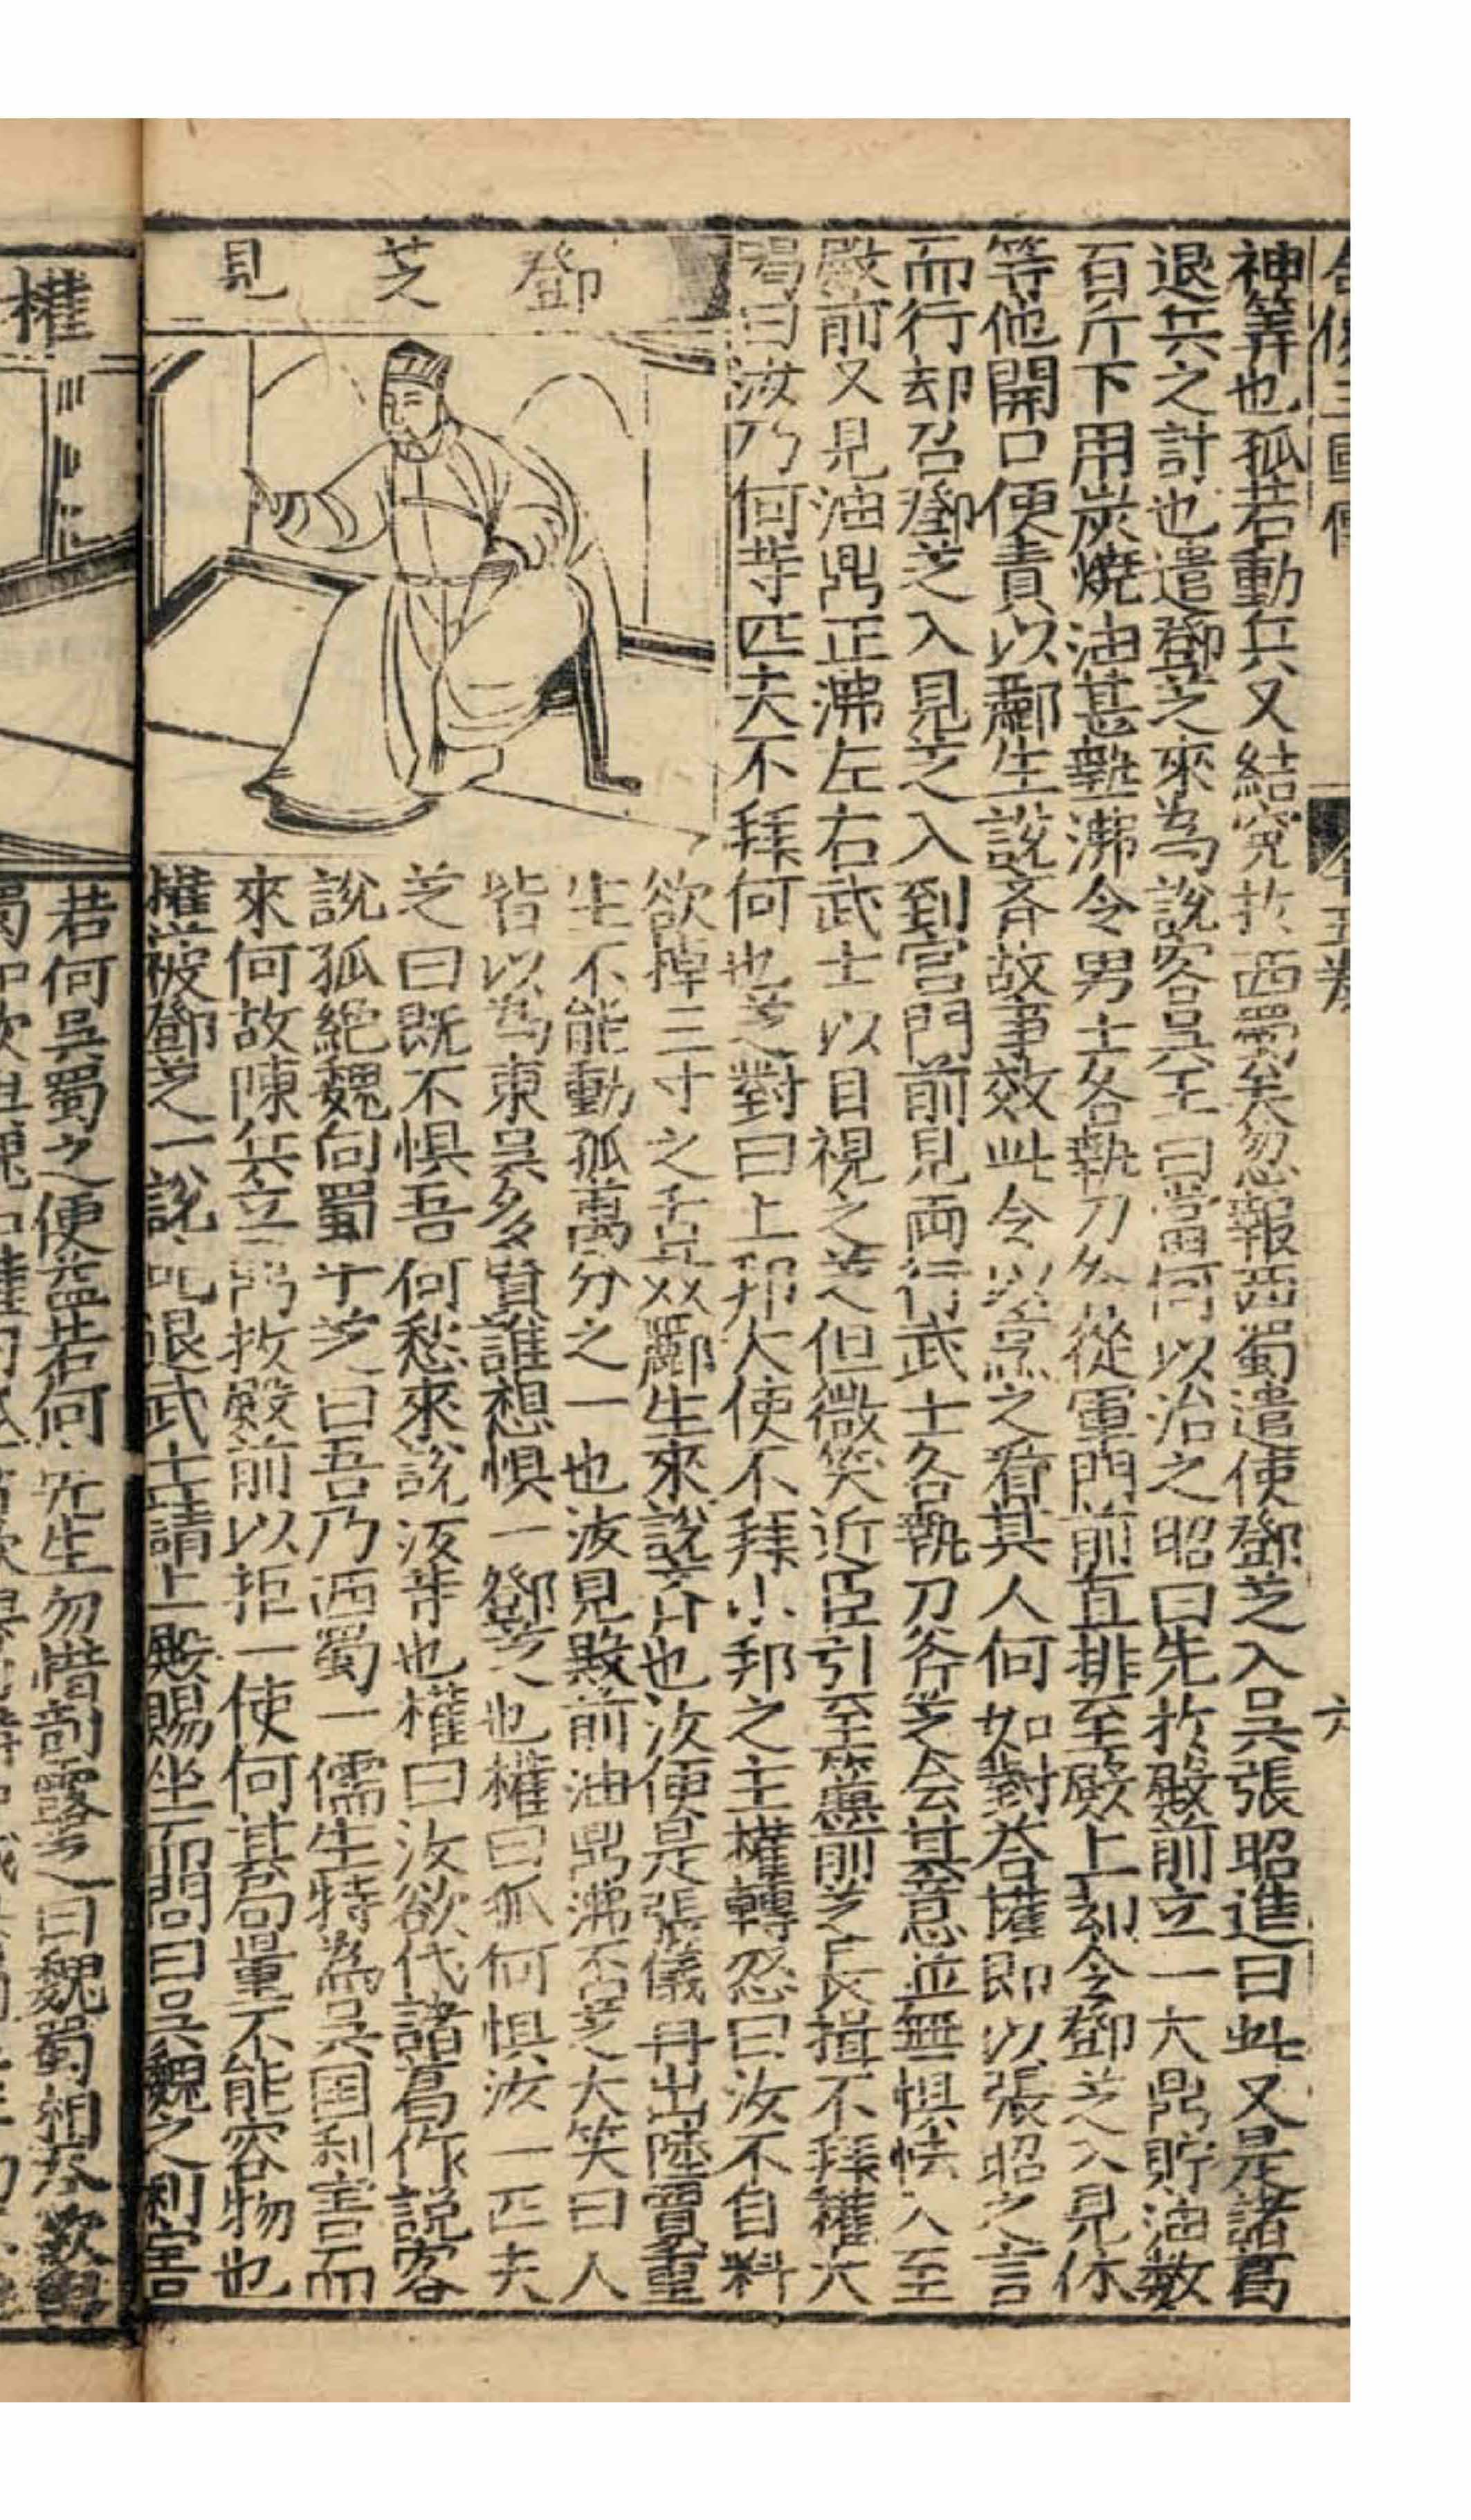 神筭也孤若動兵又結寃扵西蜀矣忽報西蜀遣使鄧芝入吳張昭進曰此又是諸葛
退兵之計也遣鄧芝來為說客吳王曰當何以治之昭曰先扵殿前立一大鼎貯油数
百斤下用炭燒油甚熱沸令男士各執刀從軍門前直排至殿上刻令鄧芝入見休
等他開口便責以酈生說斉故事效此令以烹之看其人何如對荅權即以張昭之言
而行却召鄧芝入見芝入到宫門前見両行武士各執刀斧芝会其意並無惧怯入至
殿前又見油鼎正沸左右武士以目視之芝但微笑近臣引至簷前芝長揖不拜權大
喝曰汝乃何等匹夫不拜何也芝對曰上邦大使不拜小邦之主權轉忿曰汝不自料
鄧芝見
欲掉三寸之舌效酈生來說斉也汝便是張儀再出陸賈重
生不能動孤萬分之一也汝見殿前油鼎沸否芝大笑曰人
皆以為東吳多賢誰想惧一鄧芝也權曰孤何惧汝一匹夫
芝曰既不惧吾何愁來說汝等也權曰汝欲代諸葛作説客
說孤絕魏向蜀乎芝曰吾乃西蜀一儒生特為吳国利害而
來何故陳兵立鼎扵殿前以拒一使何其局量不能容物也
權被鄧芝一說叱退武士請上殿賜坐而問曰吳魏之利害
權
若何吳蜀之便益若何先生勿惜剖露芝曰魏蜀相